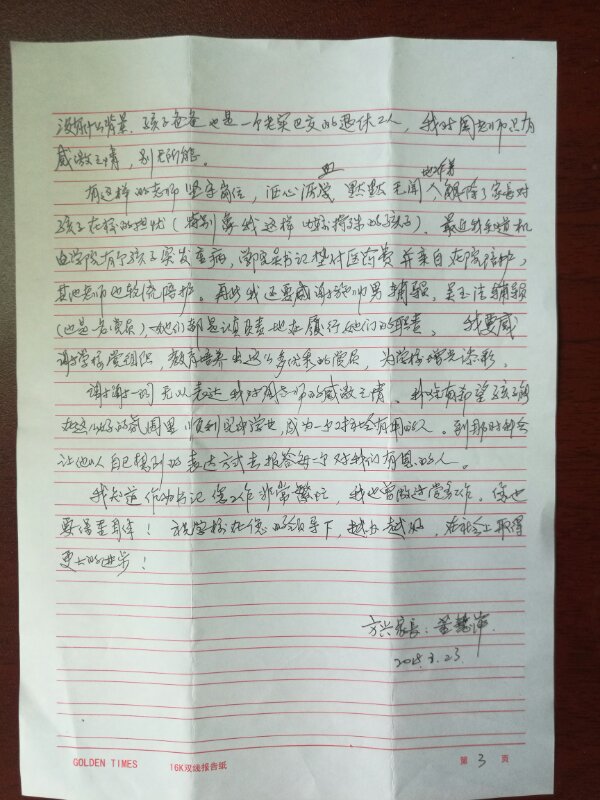 没有什么背景，孩子爸爸也是一个老实巴交的退休工人，我对周老师只有
感激之情，别无所能。
有这样的老师坚守岗位，正心治学，默默无闻 解除了家长对
孩子在校的担忧（特别像我这样 特殊的孩子）。最近我知道机
电学院有个孩子突发重病，郭院长书记垫付医药费并亲自在院陪护，
其他老师也轮流陪护。再此我还要感谢 男辅导，吴玉洁辅导
（也是党员）她们都是认真负责地在履行她们的职责。 我要感
谢学校党组织，教育培养出这么多优秀的党员，为学校增光添彩。
谢谢一词无以表达我对周老师的感激之情。我唯有希望孩子能
在这么好的氛围里顺利完成学业，成为一个对社会有用的人。到那时都会
让他以自己特别的表达方式去报答每一个对我们有恩的人。
我知道作为书记您工作非常繁忙，我也曾做过党务工作。您也
要保重身体！祝学校在您的领导下，越办越好，在社会上取得
更大的进步！
方兴家长：
2018.3.23
GOLDEN TIMES 16K双线报告纸 第 3 页